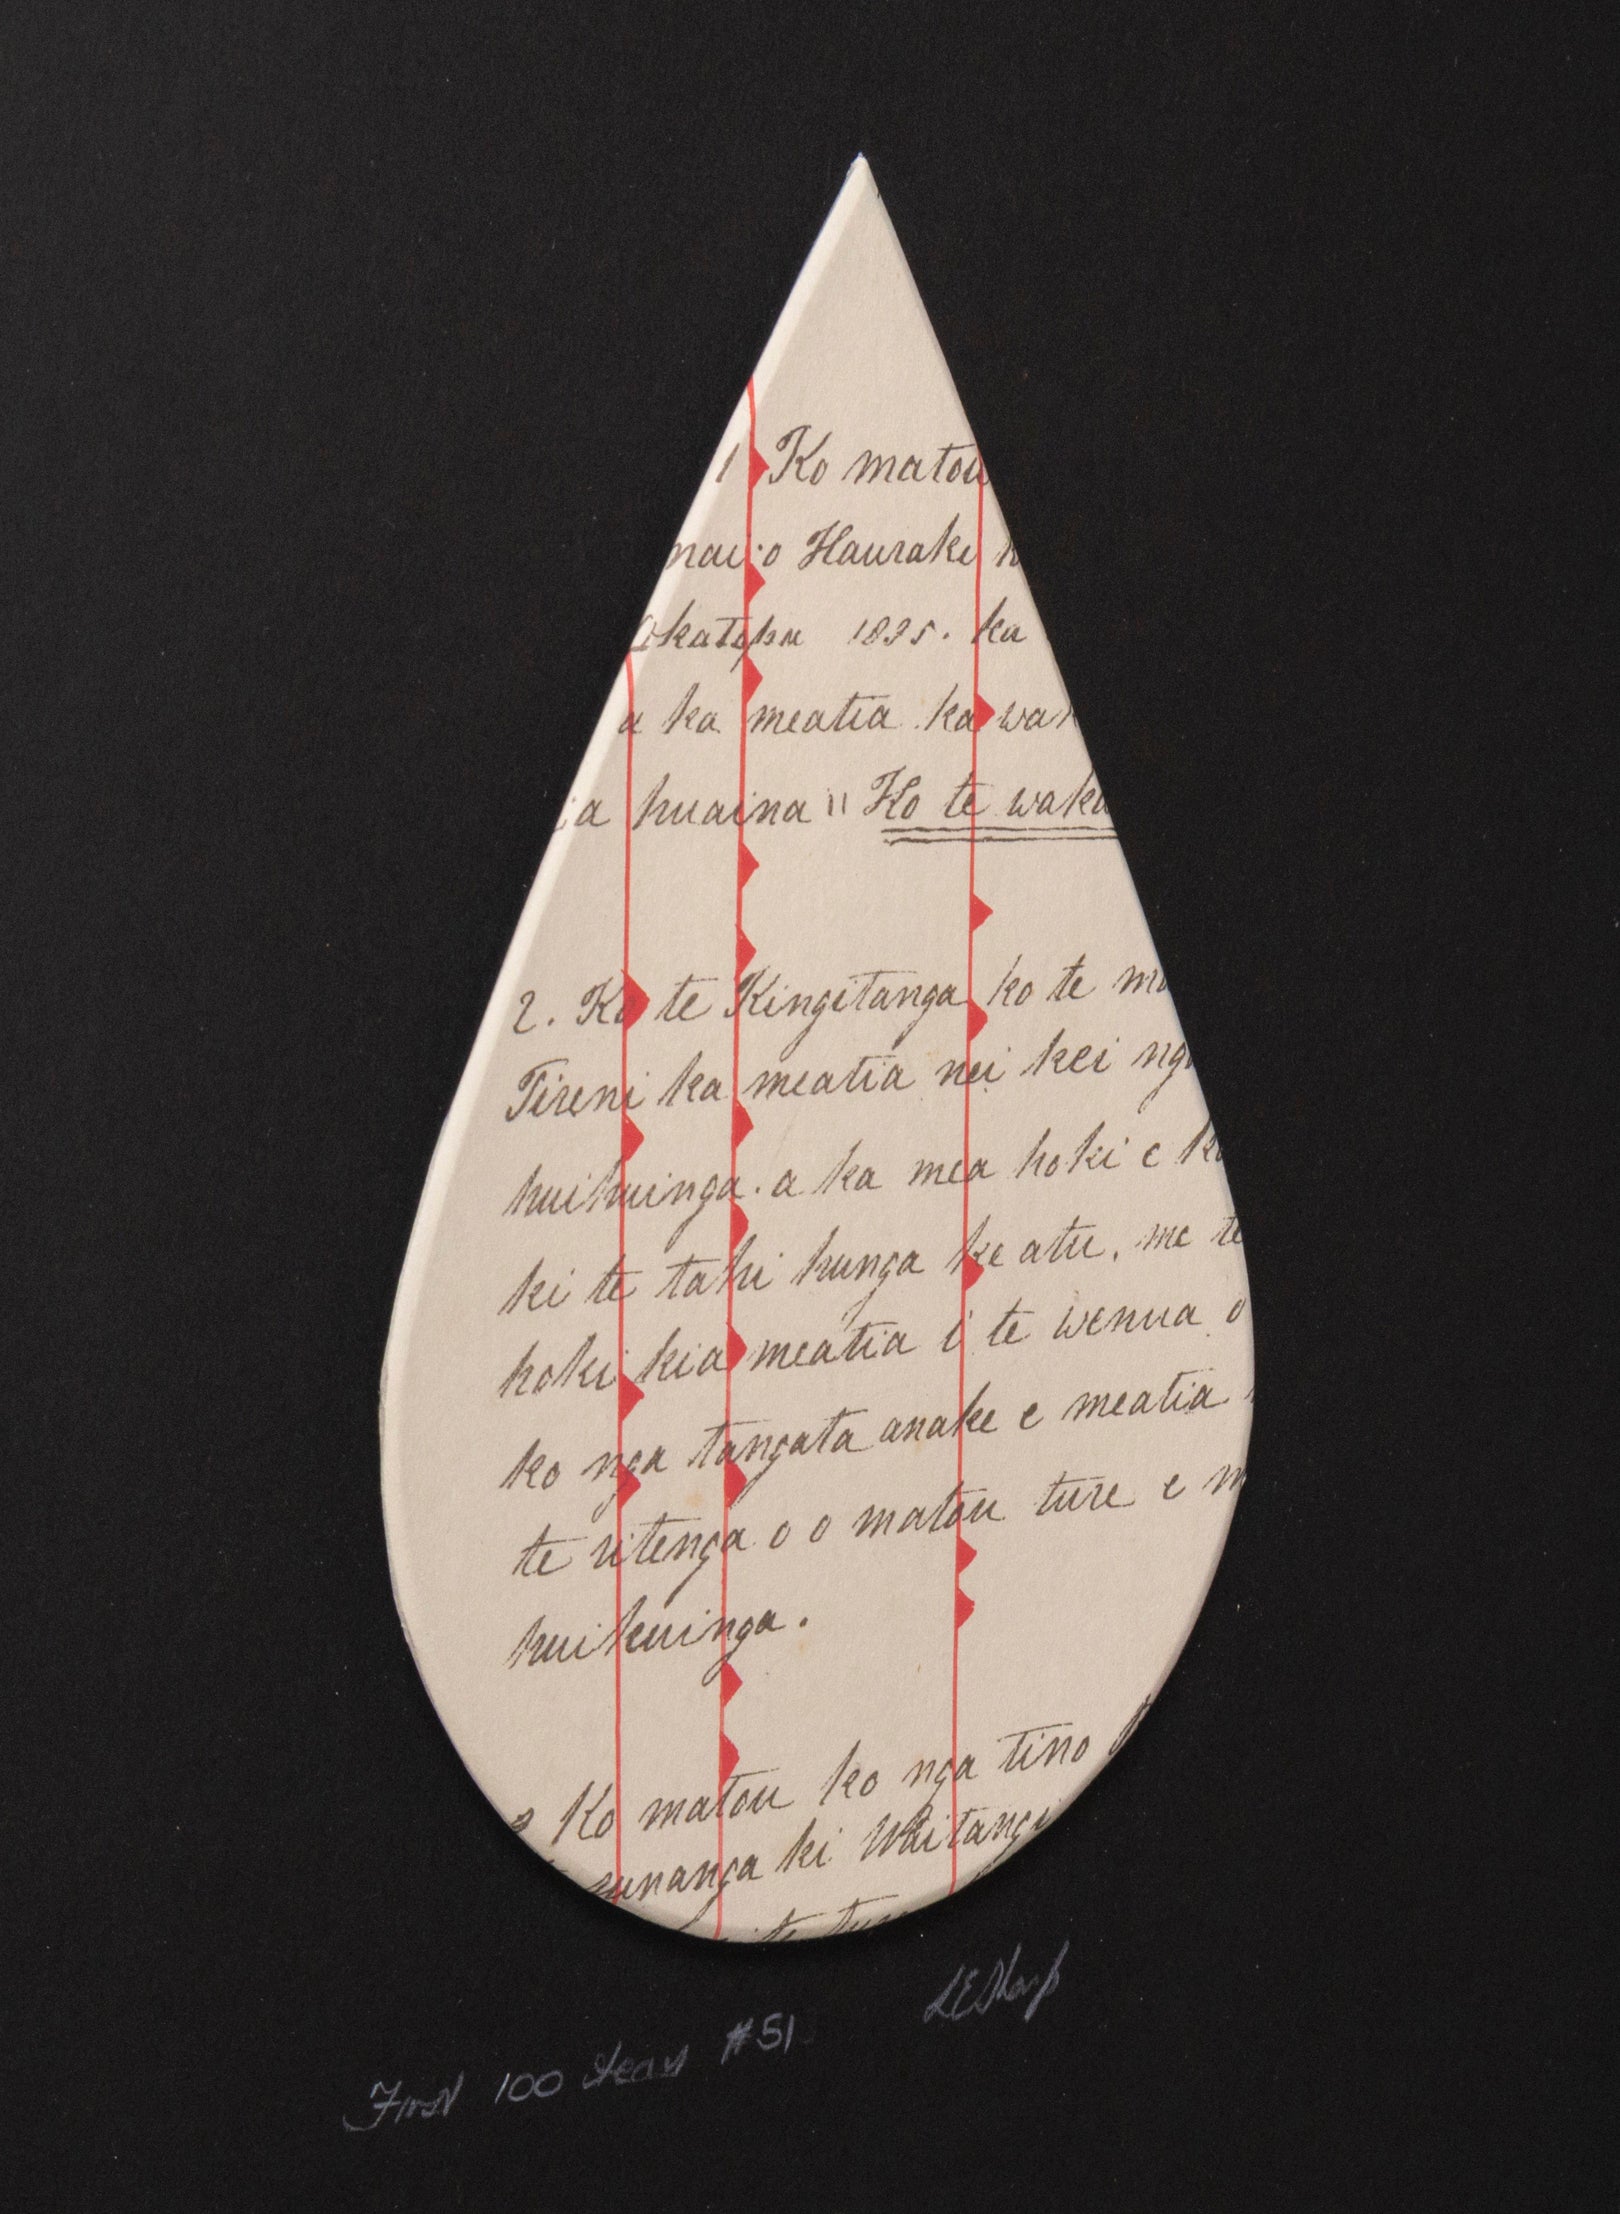 1 Ko matou
nei o Hauraki
Okatopu 1835. ka
a ka meatia ka
huaina " Ko te
2. Ko te Kingitanga ko te
Tireni ka meatia nei kei
huihuinga. a ka mea hoki e
ki te tahi hunga ke atu. me te
hoki kia meatia i te wenua o
ko nga tangata anake e meatia
te ritenga o o matou ture e
huihuinga.
Ko matou ko nga tino
ki Waitangi
te
LESharp
First 100 Years #51